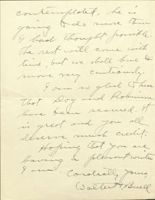 contemplated, he is
going to do more than
I had thought possible
the rest will come with
time, but we do have to
move very cautiously.
I am so glad to hear
that Boy and Robinson
have been secured. It
is great and you all
deserve much credit.
Hoping that you are
having a pleasant winter
I am
Cordially yours
Walter Buell